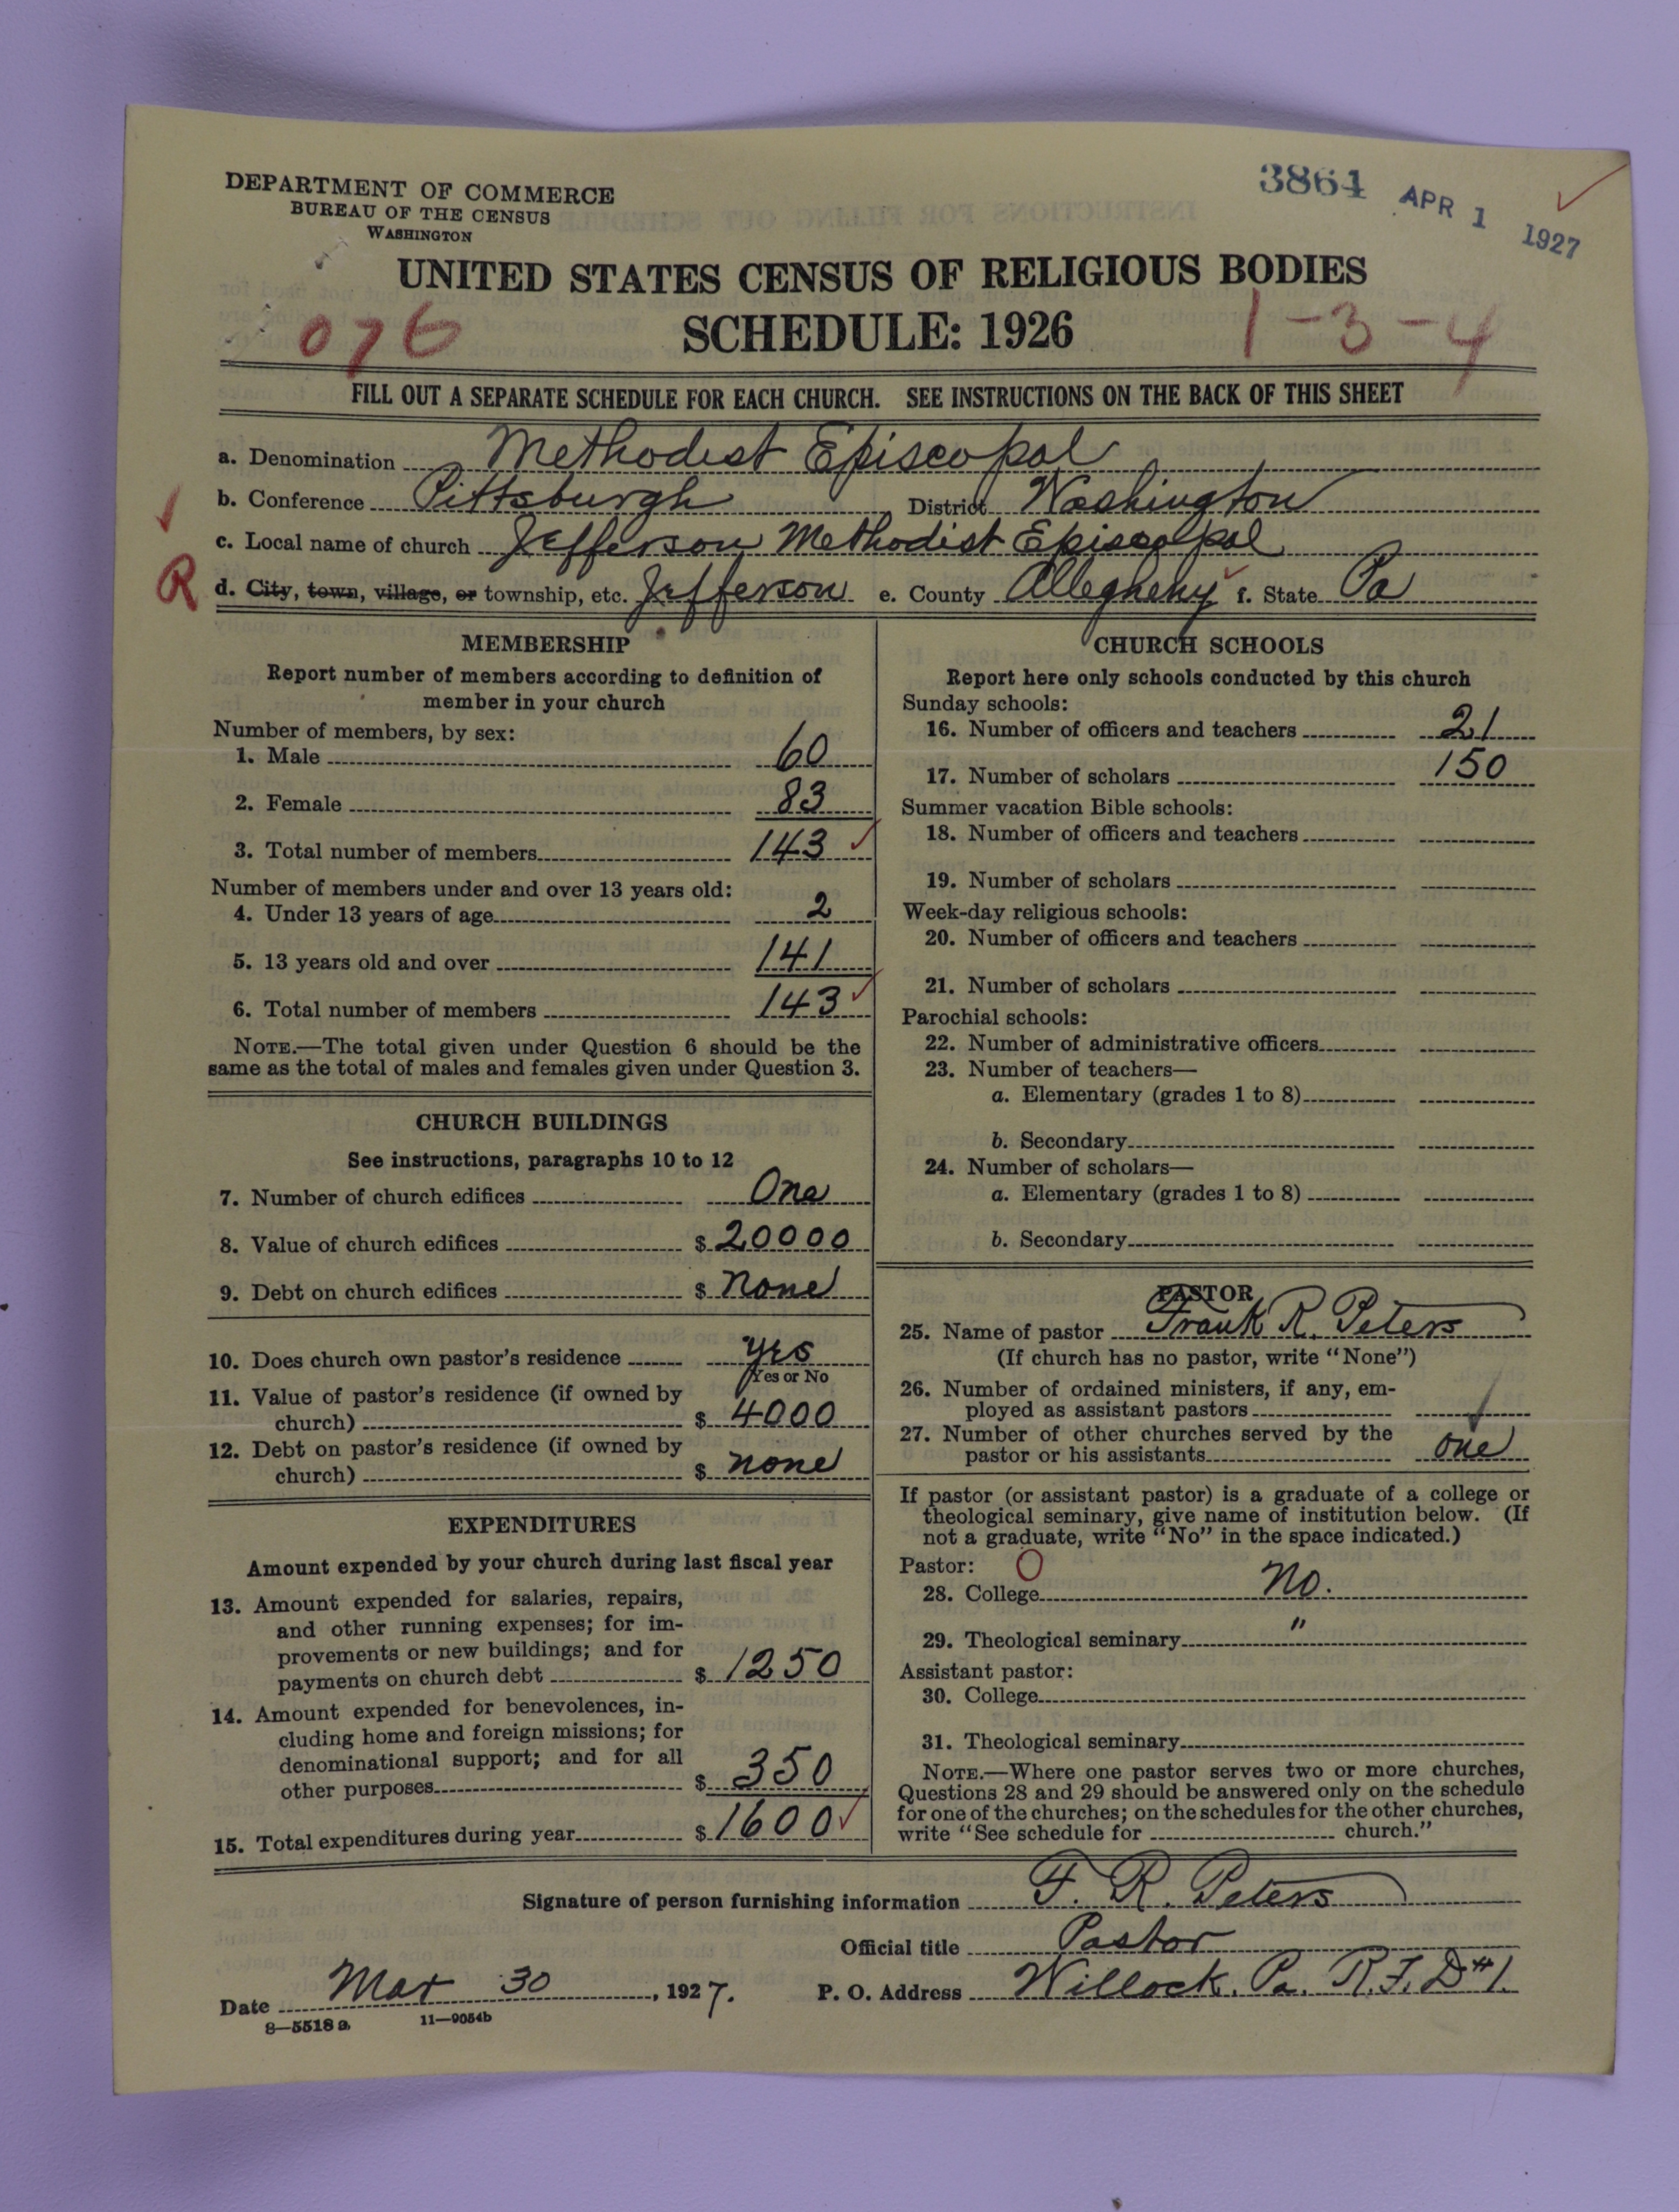 DEPARTMENT OF COMMERCE
BUREAU OF THE CENSUS
WASHINGTON
3864 APR 1 1927
UNITED STATES CENSUS OF RELIGIOUS BODIES
076 SCHEDULE: 1926 1-3-4
FILL OUT A SEPARATE SCHEDULE FOR EACH CHURCH. SEE INSTRUCTIONS ON THE BACK OF THIS SHEET
a. Denomination Methodist Episcopal
b. Conference Pittsburgh District Washington
c. Local name of church Jefferson Methodist Episcopal
R d. City, town, village, or township, etc. Jefferson e. County Allegheny f. State Pa
MEMBERSHIP
Report number of members according to definition of
member in your church
Number of members, by sex:
1. Male 60
2. Female 83
3. Total number of members 143
Number of members under and over 13 years old:
4. Under 13 years of age 2
5. 13 years old and over 141
6. Total number of members 143
NOTE.—The total given under Question 6 should be the
same as the total of males and females given under Question 3.
CHURCH BUILDINGS
See instructions, paragraphs 10 to 12
7. Number of church edifices One
8. Value of church edifices $ 20000
9. Debt on church edifices $ none
10. Does church own pastor's residence yes
Yes or No
11. Value of pastor's residence (if owned by
church) $ 4000
12. Debt on pastor's residence (if owned by
church) $ none
EXPENDITURES
Amount expended by your church during last fiscal year
13. Amount expended for salaries, repairs,
and other running expenses; for im-
provements or new buildings; and for
payments on church debt $ 1250
14. Amount expended for benevolences, in-
cluding home and foreign missions; for
denominational support; and for all
other purposes $ 350
15. Total expenditures during year $ 1600
CHURCH SCHOOLS
Report here only schools conducted by this church
Sunday schools:
16. Number of officers and teachers 21
17. Number of scholars 150
Summer vacation Bible schools:
18. Number of officers and teachers
19. Number of scholars
Week-day religious schools:
20. Number of officers and teachers
21. Number of scholars
Parochial schools:
22. Number of administrative officers
23. Number of teachers—
a. Elementary (grades 1 to 8)
b. Secondary
24. Number of scholars—
a. Elementary (grades 1 to 8)
b. Secondary
PASTOR
25. Name of pastor Frank R. Peters
(If church has no pastor, write "None")
26. Number of ordained ministers, if any, em-
ployed as assistant pastors
27. Number of other churches served by the
pastor or his assistants one
If pastor (or assistant pastor) is a graduate of a college or
theological seminary, give name of institution below. (If
not a graduate, write "No" in the space indicated.)
Pastor: O
28. College No.
29. Theological seminary "
Assistant pastor:
30. College
31. Theological seminary
NOTE.—Where one pastor serves two or more churches,
Questions 28 and 29 should be answered only on the schedule
for one of the churches; on the schedules for the other churches,
write "See schedule for church."
Signature of person furnishing information F. R. Peters
Official title Pastor
Date Mar 30, 1927. P. O. Address Willock, Pa. R.F.D #1.
8—5518 a 11—9054b